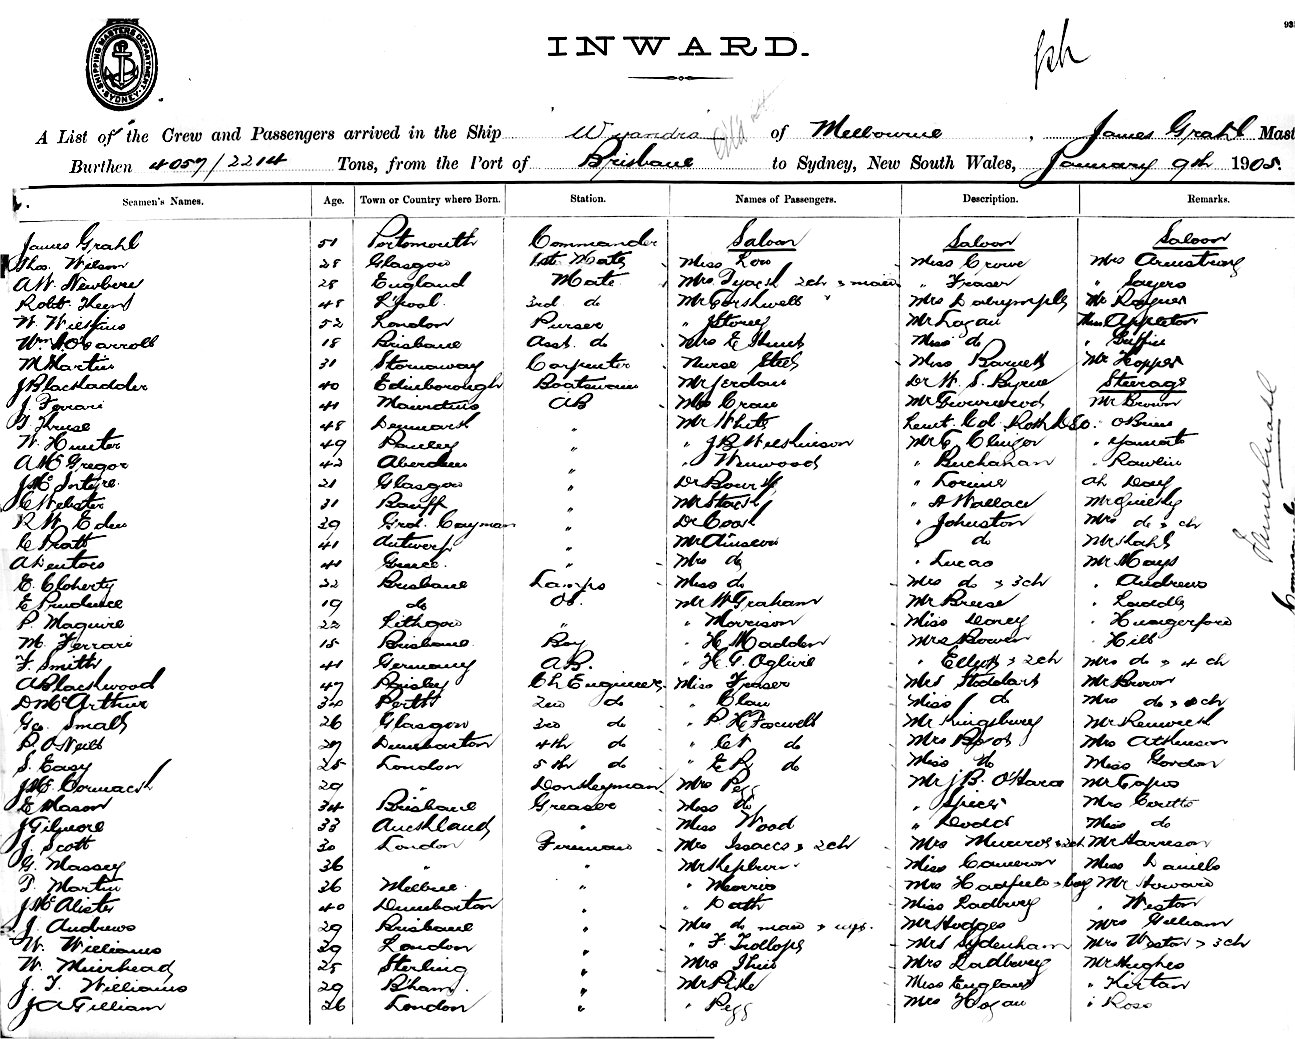 SHIPPING MASTERS DEPARTMENT SYDNEY
INWARD.
A List of the Crew and Passengers arrived in the Ship Wyandra of Melbourne, James Grahl Mast
Burthen 4059/2214 Tons, from the Port of Brisbane to Sydney, New South Wales, January 9th 1905.
Seamen's Names. Age. Town or Country where Born. Station. Names of Passengers. Description. Remarks.
James Grahl 51 Portsmouth Commander Saloon Saloon Saloon
Thos. Wilson 28 Glasgow 1st Mate Miss Low Miss Crowe Mrs Armstrong
A.W. Newbere 25 England Mate Mrs 2ch & maid " Fraser " Sayers
Robt. 48 L'pool 3rd do Mr Mrs Dalrymple Mr
W. Wilkins 52 London Purser " Storey Mr Logan Miss Appleton
Wm O'Carroll 18 Brisbane Asst. do Mrs E Miss do " Griffin
M Martin 31 Stornaway Carpenter Nurse Steel Miss Barnett Mr Hopper
J Blackladder 40 Edinborough Boatswain Mr Jerdan Dr W. S. Byrne Steerage
J. Ferrari 41 Mauritius AB Mrs Crau Mr Greenwood Mr Brown
48 Denmark " Mr White Lieut. Col. Roth DSO. " O'Brien
W. Hunter 49 " " J B Wilkinson Mr G
A McGregor 42 Aberdeen " " Winwood " Buchanan " Rawlin
J McIntyre 21 Glasgow " Dr " Lorimer Ah Day
C Webster 31 Banff " Mr Stark " A Wallace Mr
R W Eden 39 Grd. Cayman " Dr Cook " Johnston Mrs do & ch
C Pratt 41 Antwerp " Mr " do Mr Stahl
41 Greece " Mrs do " Lucas Mr Mays
E. Cloherty 22 Brisbane Lamps Miss do Mrs do & 3ch " Andrews
E Prudence 19 do OS. Mr W Graham Mr Breese
P. Maguire 22 Lithgow " " Morrison Miss " Hungerford
M. Ferrari 15 Brisbane Boy " H Madden Mrs Bowen " Hill
F. Smith 41 Germany A.B. " H. G. Ogilvie " Elliott & 2ch Mrs do & 4 ch
A Blackwood 47 Paisley Ch Engineer Miss Fraser Mrs Stoddart Mr Brown
D McArthur 34 Perth 2nd do " Miss do Mrs do & ch
Geo Small 26 Glasgow 3rd do " P. H Foxwell Mr Kingsbury Mr
P. O'Neill 27 Dumbarton 4th do " do Mrs Mrs Atkinson
S. Easy 25 London 5th do " do Miss Miss Gordon
J McCormack 29 " Donkeyman Mrs Pegg Mr J B. O'Hara Mr
E Mason 34 Brisbane Greaser Miss do " Spicer Mrs
J Gilmore 33 Auckland " Miss Wood " Dodd Miss do
J. Scott 30 London Fireman Mrs Isaacs & 2ch Mrs Munro & 2ch Mr Harrison
G. Massey 36 " " Mr Hepburn Miss Cameron Miss Daniells
T. Martin 36 Melbne. " " Morris Mrs Hadfield & boy Mr Howard
J McAlister 40 Dumbarton " " Miss Ladbury " Weston
J. Andrews 29 Brisbane " Mrs do maid & Mr Hodges Mrs William
W. Williams 39 London " " F Trollope Mrs Sydenham Mrs Weston & 3ch
W. Muirhead 25 Sterling " Mrs Mrs Ladbury Mr Hughes
J. T. Williams 29 B'ham. " Mr Pike Miss England " Kirtan
J A Gilliam 26 London " " Pegg Mrs Hogan " Ross